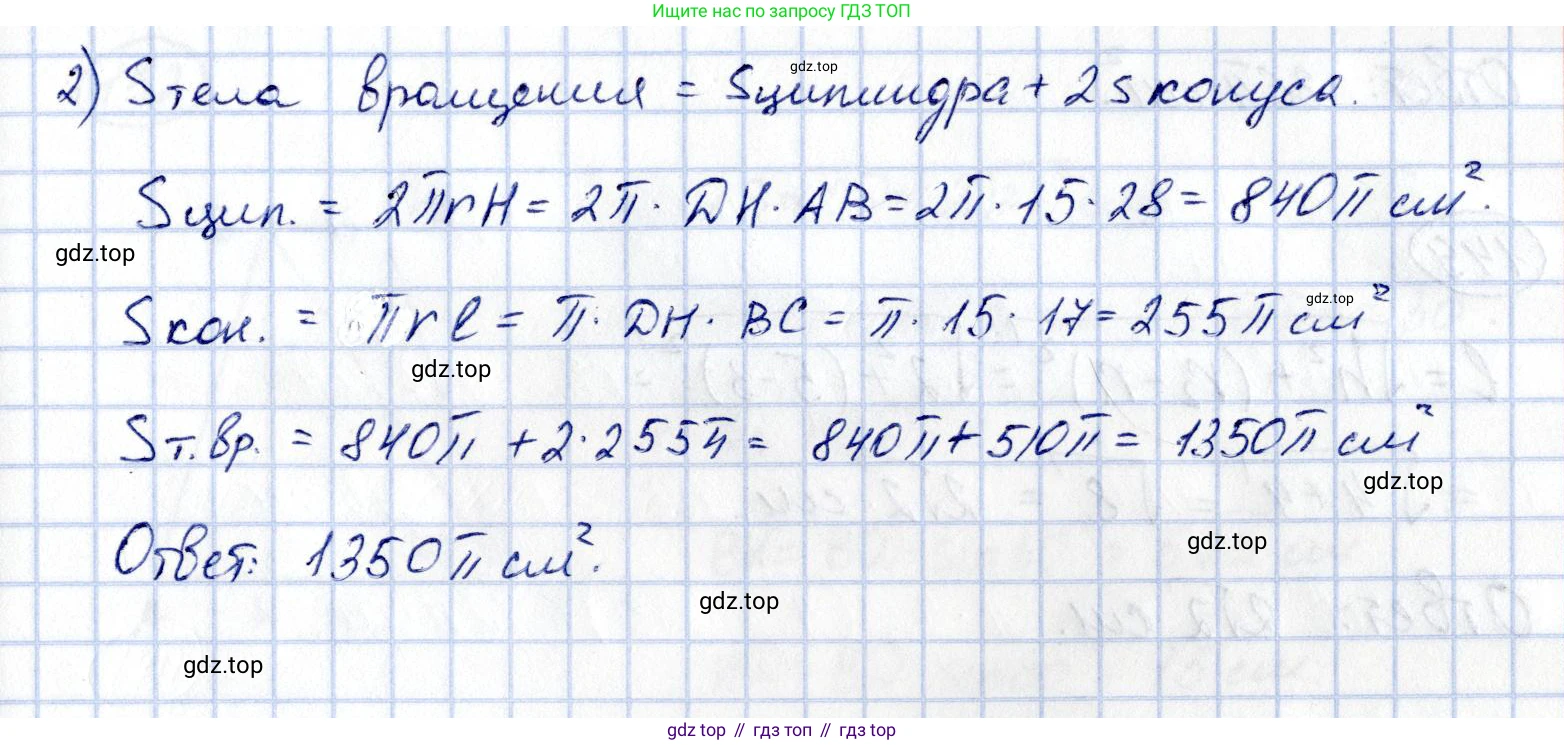 Ищите нас по запросу ГДЗ ТОП
gdz.top
2) Sтела вращения = Sцилиндра + 2 Sконуса.
Sцил. = 2πrH = 2π · DH · AB = 2π · 15 · 28 = 840π см².
gdz.top
gdz.top
Sкон. = πrl = π · DH · BC = π · 15 · 17 = 255π см²
gdz.top
Sт.вр. = 840π + 2·255π = 840π + 510π = 1350π см²
gdz.top
gdz.top
Ответ: 1350π см².
gdz.top
gdz.top
gdz top // гдз топ // gdz.top